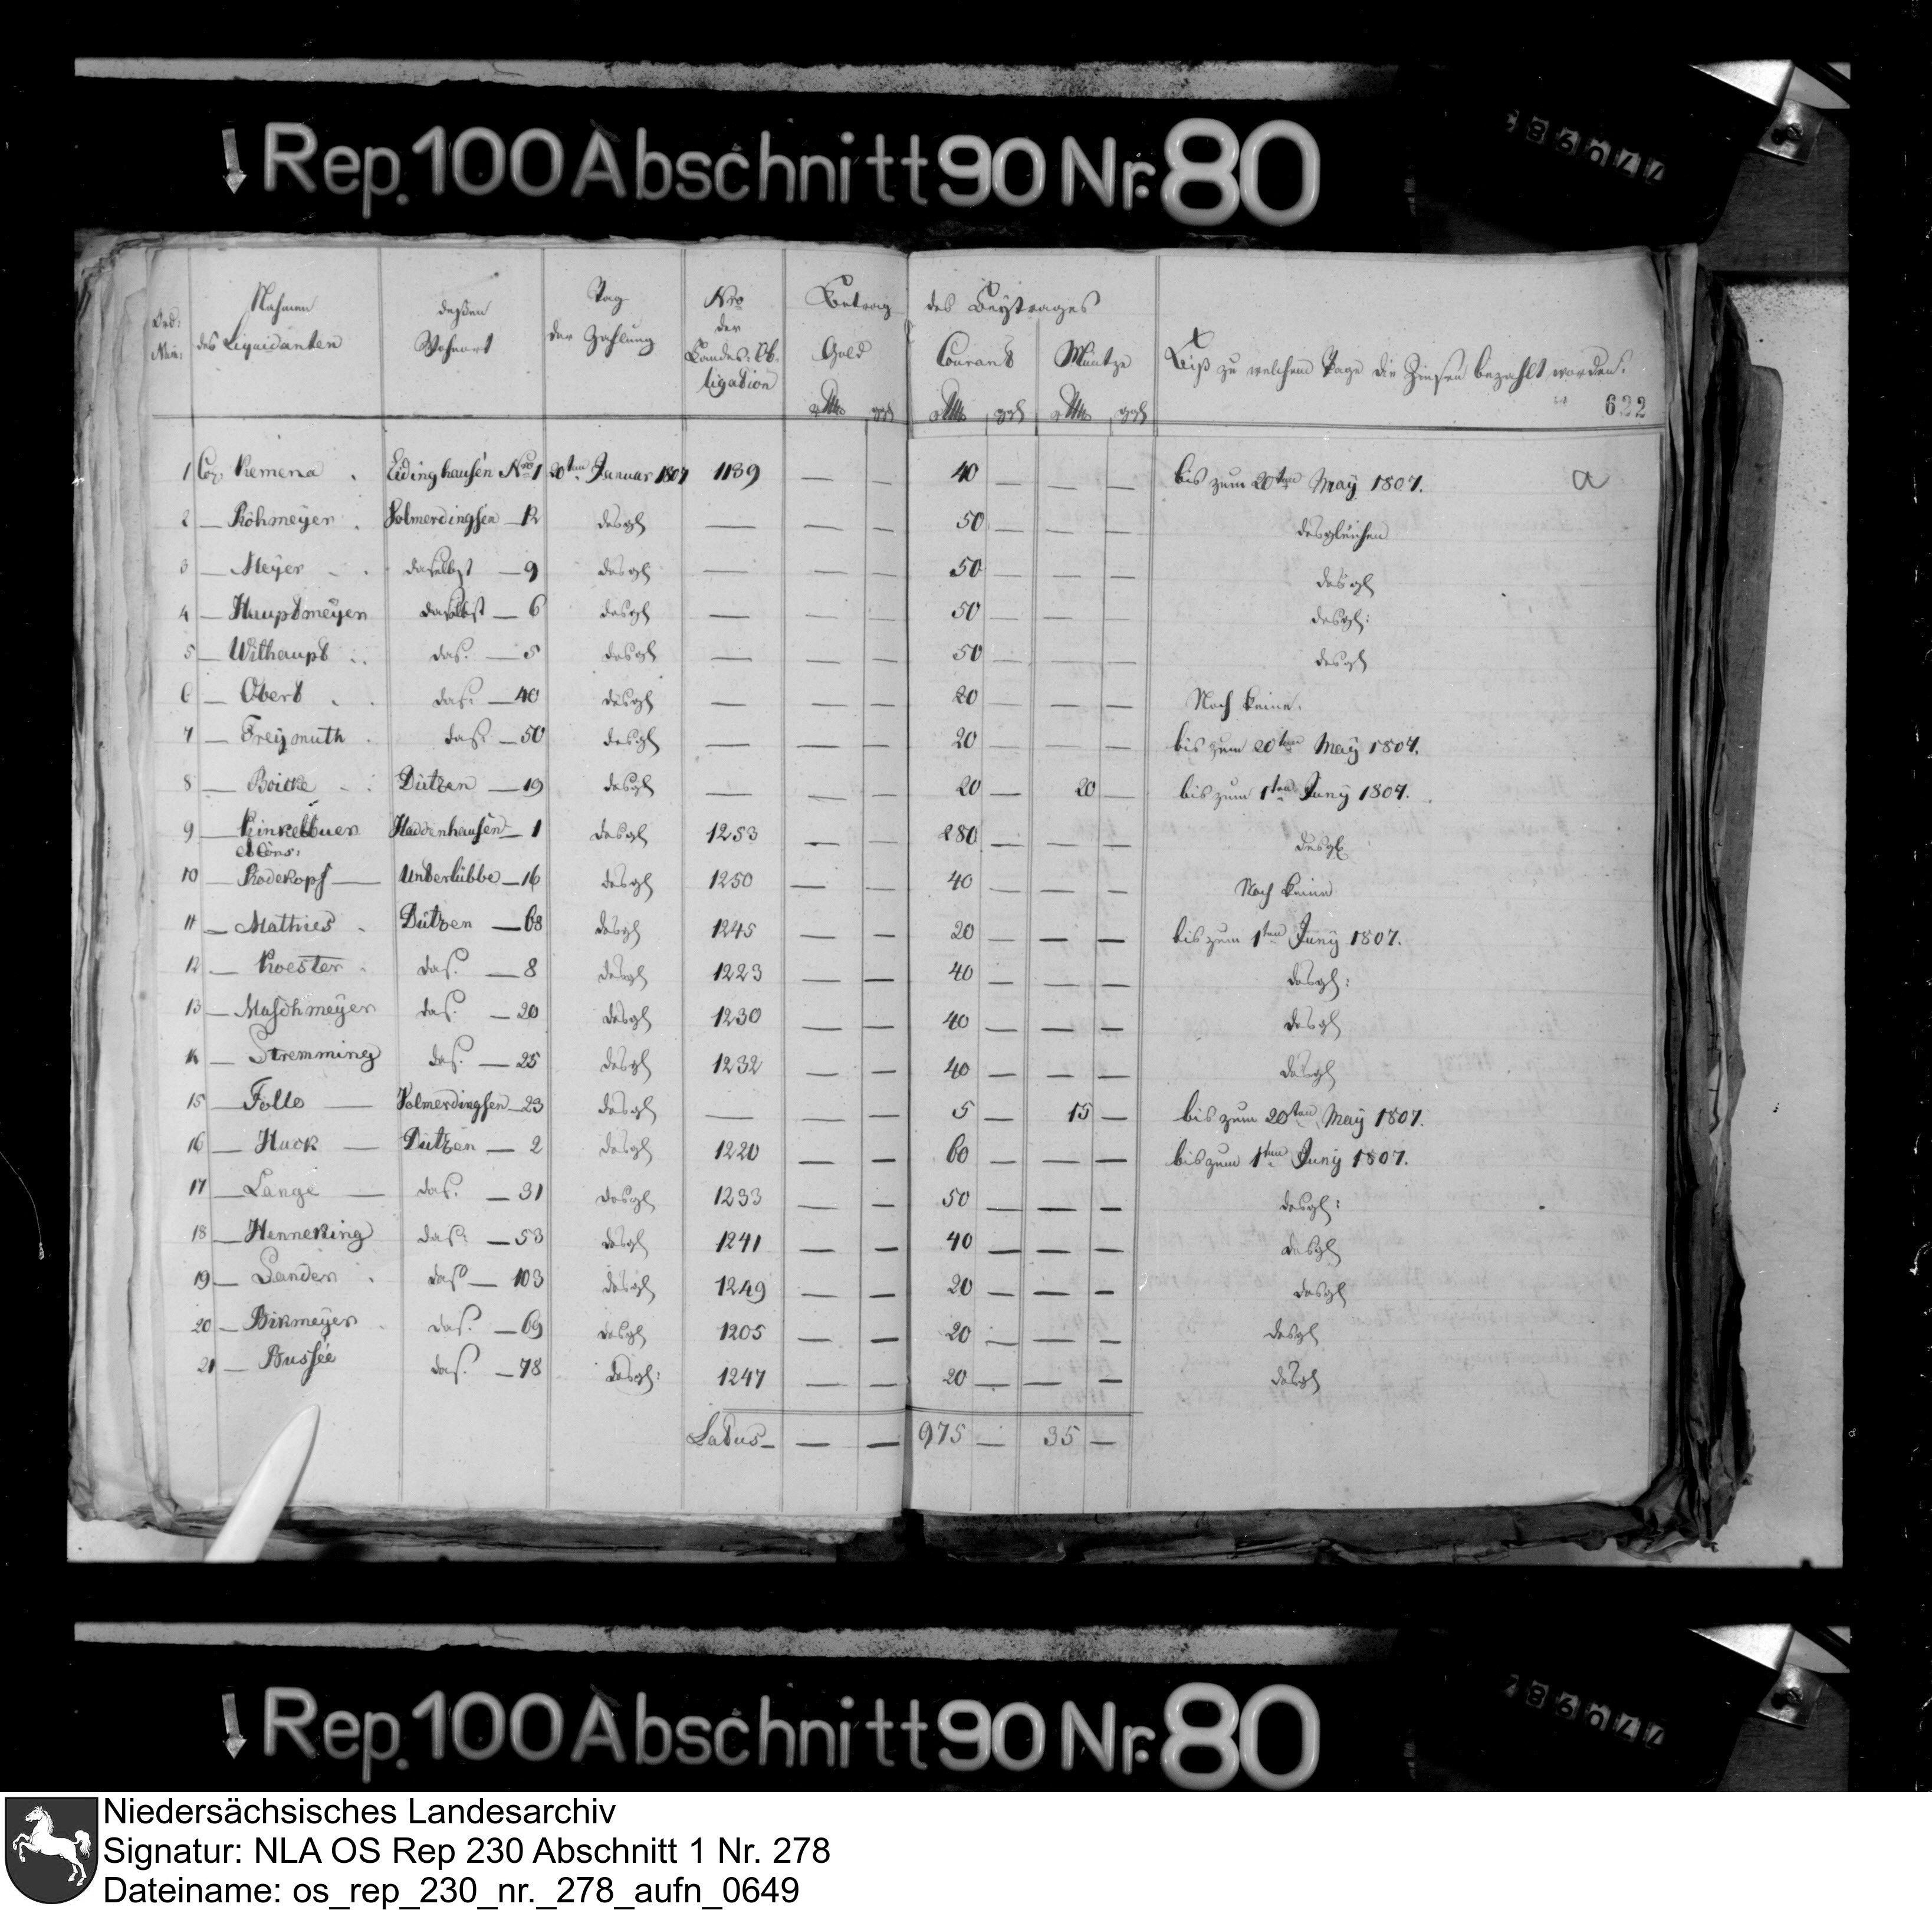 ↓ Rep. 100 Abschnitt 90 Nr. 80
Nahmen des Liquidanten
deßen Wohnort
Tag der Zahlung
Nro der Landes-Obligation
Betrag des Beytrages
Gold Courant Müntze
Biß zu welchem Tage die Zinsen bezahlt worden.
622
1 Col. Remena Eidinghausen Nro 1 20ten Januar 1807 1139 — — 40 — — — bis zum 20ten May 1807. a
2 — Röhmeyer Volmerdingsen — 12 desgl — — — 50 — — — desgleichen
3 — Meyer daselbst — 9 desgl — — — 50 — — — desgl
4 — Hauptmeyer daselbst — 6 desgl — — — 50 — — — desgl:
5 — Withaupt das. — 5 desgl — — — 50 — — — desgl
6 — Obert das. — 40 desgl — — — 20 — — — Noch keine.
7 — Freymuth das. — 50 desgl — — — 20 — — — bis zum 20ten May 1807.
8 — Boitke Dützen — 19 desgl — — — 20 — 20 — bis zum 1ten Juny 1807.
9 — Rinkelbuer et Cons: Haddenhausen — 1 desgl 1253 — — 280 — — — desgl
10 — Rodekopf — Unterlübbe — 16 desgl 1250 — — 40 — — — Noch keine
11 — Mathies Dützen — 68 desgl 1245 — — 20 — — — bis zum 1ten Juny 1807.
12 — Koester das. — 8 desgl 1223 — — 40 — — — desgl:
13 — Maschmeyer das. — 20 desgl 1230 — — 40 — — — desgl
14 — Stremming das. — 25 desgl 1232 — — 40 — — — desgl
15 — Folle — Volmerdingsen — 23 desgl — — — 5 — 15 — bis zum 20ten May 1807.
16 — Huck — Dützen — 2 desgl 1220 — — 60 — — — bis zum 1ten Juny 1807.
17 — Lange — das. — 31 desgl 1233 — — 50 — — — desgl:
18 — Henneking das. — 53 desgl 1241 — — 40 — — — desgl
19 — Sander das. — 103 desgl 1249 — — 20 — — — desgl
20 — Birmeyer das. — 69 desgl 1205 — — 20 — — — desgl
21 — Bussée das. — 78 desgl: 1247 — — 20 — — — desgl
Latus — — — 975 — 35 —
↓ Rep. 100 Abschnitt 90 Nr. 80
Niedersächsisches Landesarchiv
Signatur: NLA OS Rep 230 Abschnitt 1 Nr. 278
Dateiname: os_rep_230_nr._278_aufn_0649